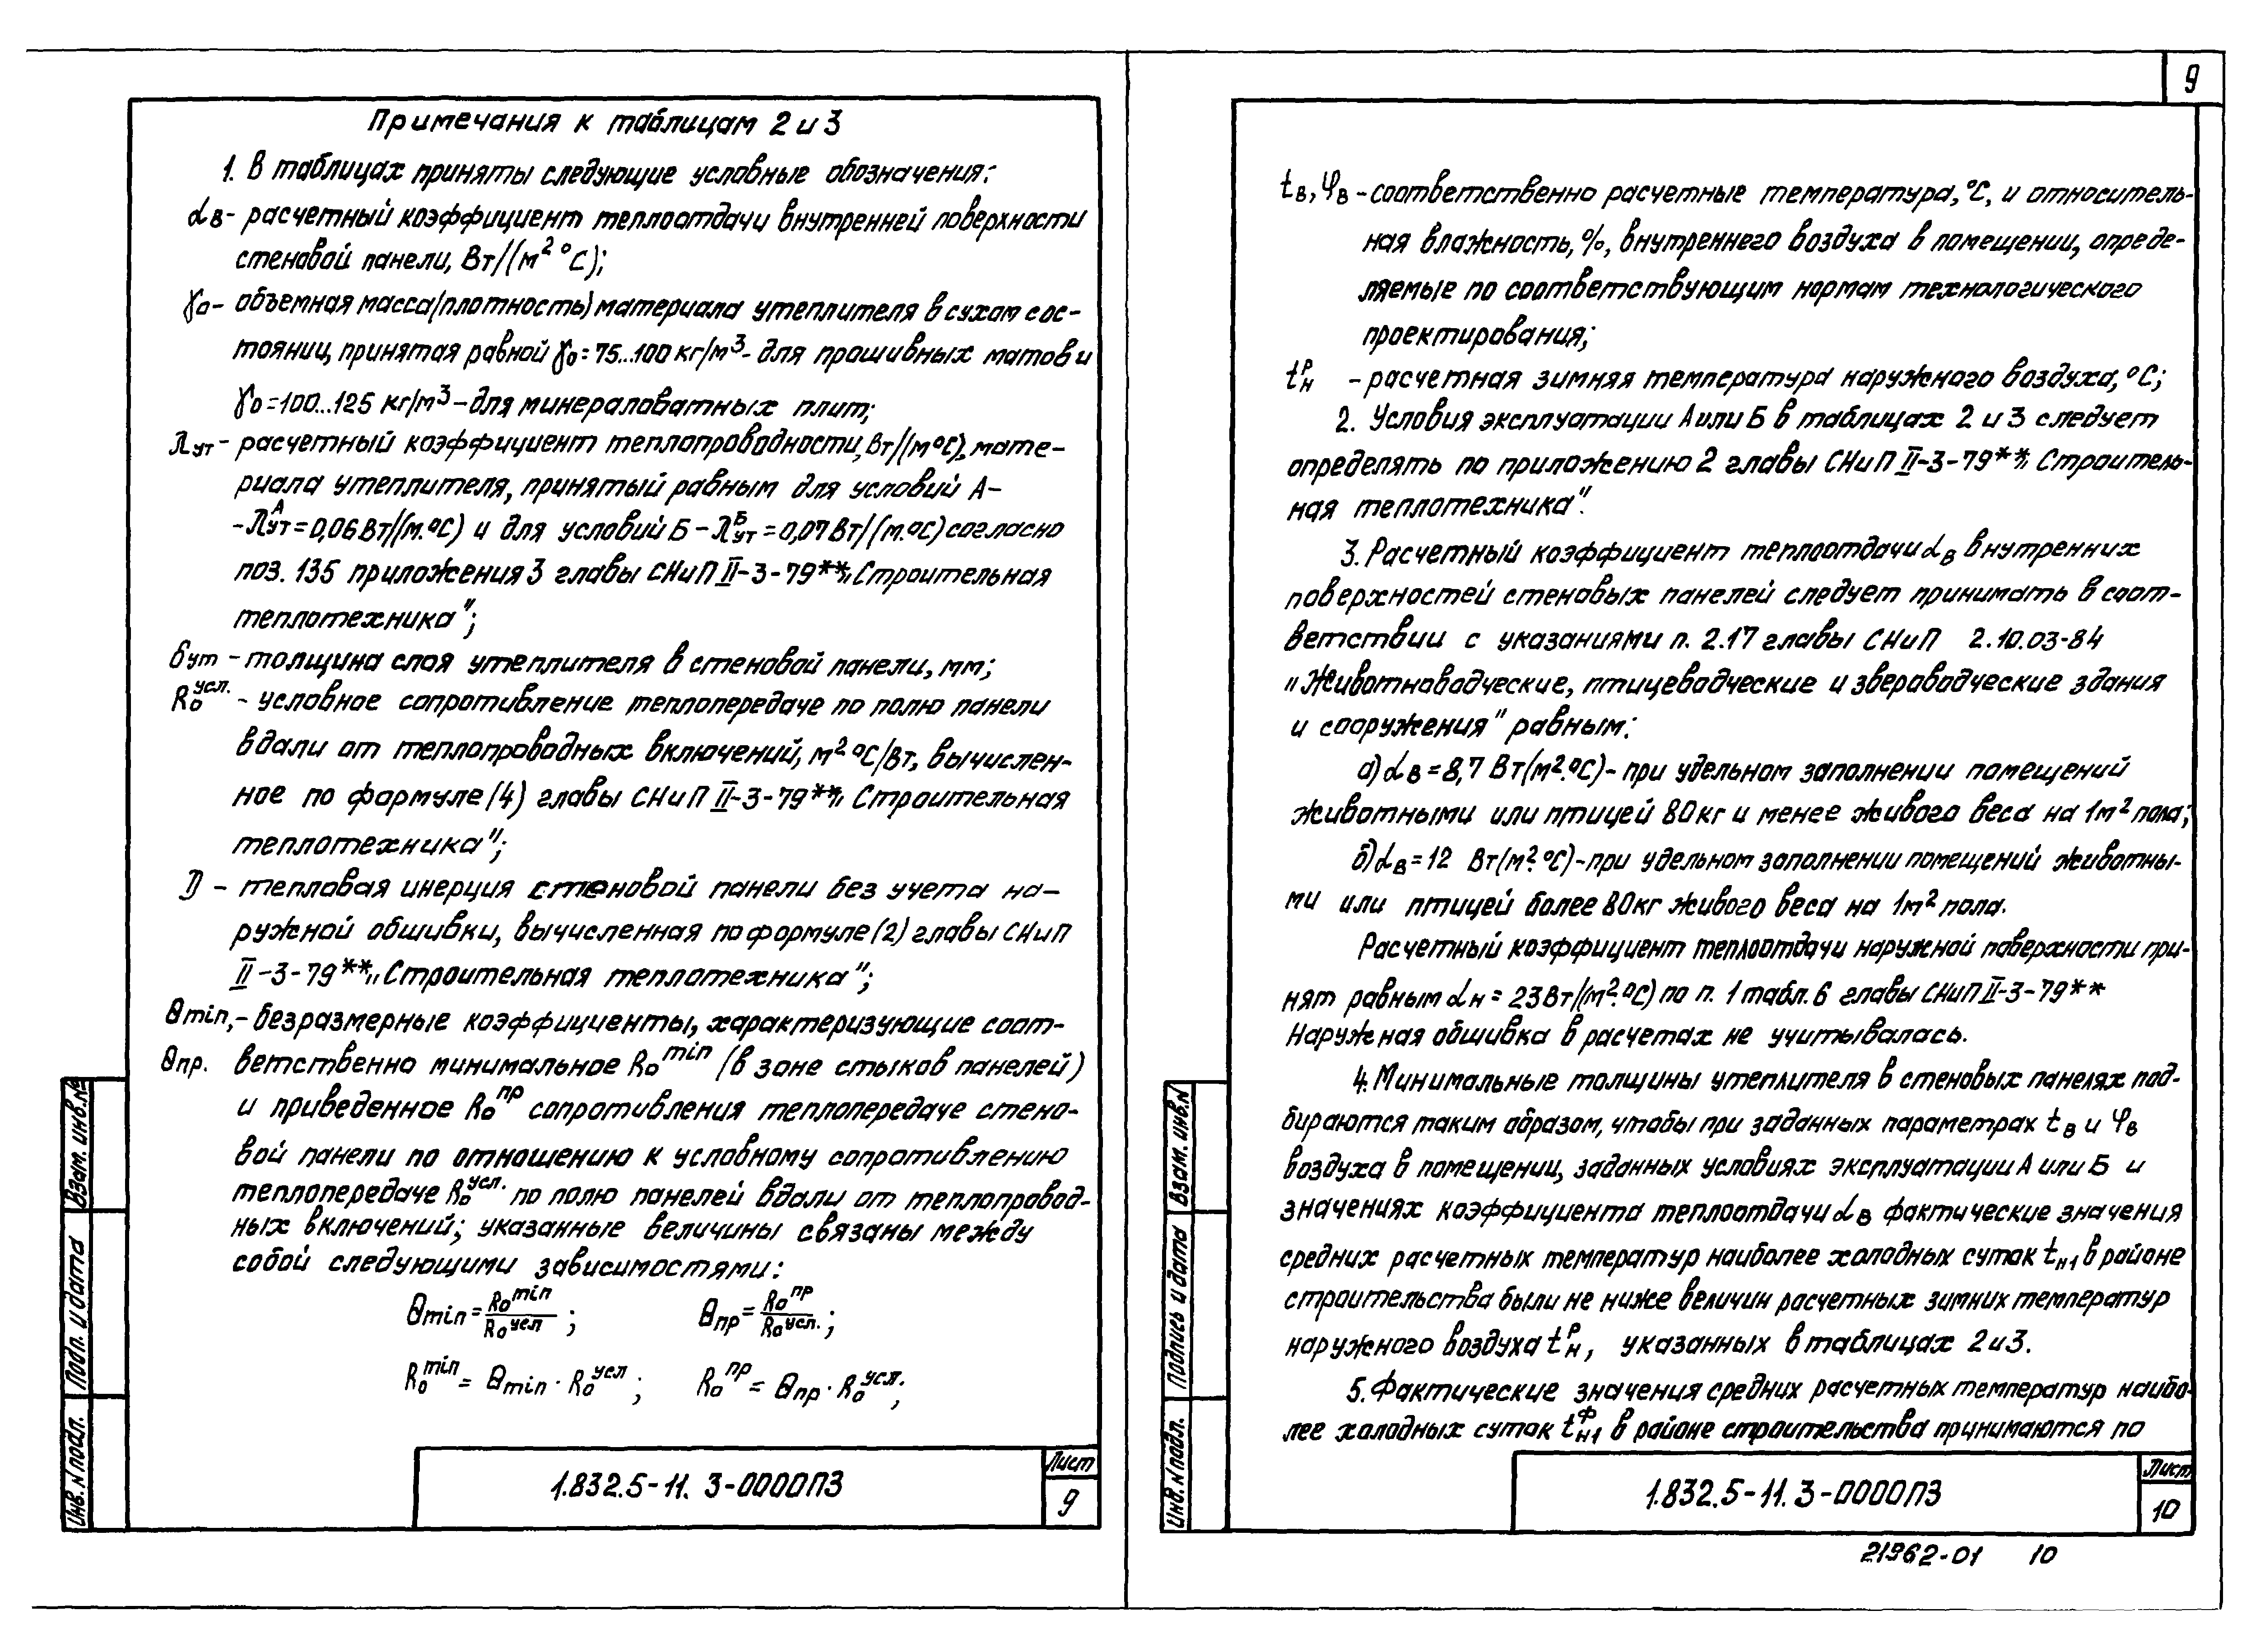 Примечания к таблицам 2 и 3
1. В таблицах приняты следующие условные обозначения:
αв - расчетный коэффициент теплоотдачи внутренней поверхности
стеновой панели, Вт/(м² °С);
γо - объемная масса (плотность) материала утеплителя в сухом сос-
тоянии, принятая равной γо = 75...100 кг/м³ - для прошивных матов и
γо = 100...125 кг/м³ - для минераловатных плит;
λут - расчетный коэффициент теплопроводности, Вт/(м °С), мате-
риала утеплителя, принятый равным для условий А -
- λут^А = 0,06 Вт/(м.°С) и для условий Б - λут^Б = 0,07 Вт/(м.°С) согласно
поз. 135 приложения 3 главы СНиП II-3-79** „Строительная
теплотехника";
δут - толщина слоя утеплителя в стеновой панели, мм;
Rо^усл. - условное сопротивление теплопередаче по полю панели
вдали от теплопроводных включений, м² °С/Вт, вычислен-
ное по формуле (4) главы СНиП II-3-79** „Строительная
теплотехника";
D - тепловая инерция стеновой панели без учета на-
ружной обшивки, вычисленная по формуле (2) главы СНиП
II-3-79** „Строительная теплотехника";
θmin, - безразмерные коэффициенты, характеризующие соот-
θпр. ветственно минимальное Rо^min (в зоне стыков панелей)
и приведенное Rо^пр сопротивления теплопередаче стено-
вой панели по отношению к условному сопротивлению
теплопередаче Rо^усл. по полю панелей вдали от теплопровод-
ных включений; указанные величины связаны между
собой следующими зависимостями:
θmin = Rо^min / Rо^усл ; θпр = Rо^пр / Rо^усл. ;
Rо^min = θmin · Rо^усл ; Rо^пр = θпр · Rо^усл. ;
Взам. инв.№
Подп. и дата
Инв. N подл.
1.832.5-11. 3-0000ПЗ
Лист
9
9
tв, φв - соответственно расчетные температура, °С, и относитель-
ная влажность, %, внутреннего воздуха в помещении, опреде-
ляемые по соответствующим нормам технологического
проектирования;
tн^р - расчетная зимняя температура наружного воздуха, °С;
2. Условия эксплуатации А или Б в таблицах 2 и 3 следует
определять по приложению 2 главы СНиП II-3-79** „Строитель-
ная теплотехника".
3. Расчетный коэффициент теплоотдачи αв внутренних
поверхностей стеновых панелей следует принимать в соот-
ветствии с указаниями п. 2.17 главы СНиП 2.10.03-84
„Животноводческие, птицеводческие и звероводческие здания
и сооружения" равным:
а) αв = 8,7 Вт(м².°С) - при удельном заполнении помещений
животными или птицей 80 кг и менее живого веса на 1м² пола;
б) αв = 12 Вт(м².°С) - при удельном заполнении помещений животны-
ми или птицей более 80кг живого веса на 1м² пола.
Расчетный коэффициент теплоотдачи наружной поверхности при-
нят равным αн = 23 Вт/(м².°С) по п. 1 табл. 6 главы СНиП II-3-79**
Наружная обшивка в расчетах не учитывалась.
4. Минимальные толщины утеплителя в стеновых панелях под-
бираются таким образом, чтобы при заданных параметрах tв и φв
воздуха в помещении, заданных условиях эксплуатации А или Б и
значениях коэффициента теплоотдачи αв фактические значения
средних расчетных температур наиболее холодных суток tн1 в районе
строительства были не ниже величин расчетных зимних температур
наружного воздуха tн^р, указанных в таблицах 2 и 3.
5. Фактические значения средних расчетных температур наибо-
лее холодных суток tн1^ф в районе строительства принимаются по
Взам. инв.N
Подпись и дата
Инв. N подл.
1.832.5-11. 3-0000ПЗ
Лист
10
21962-01 10